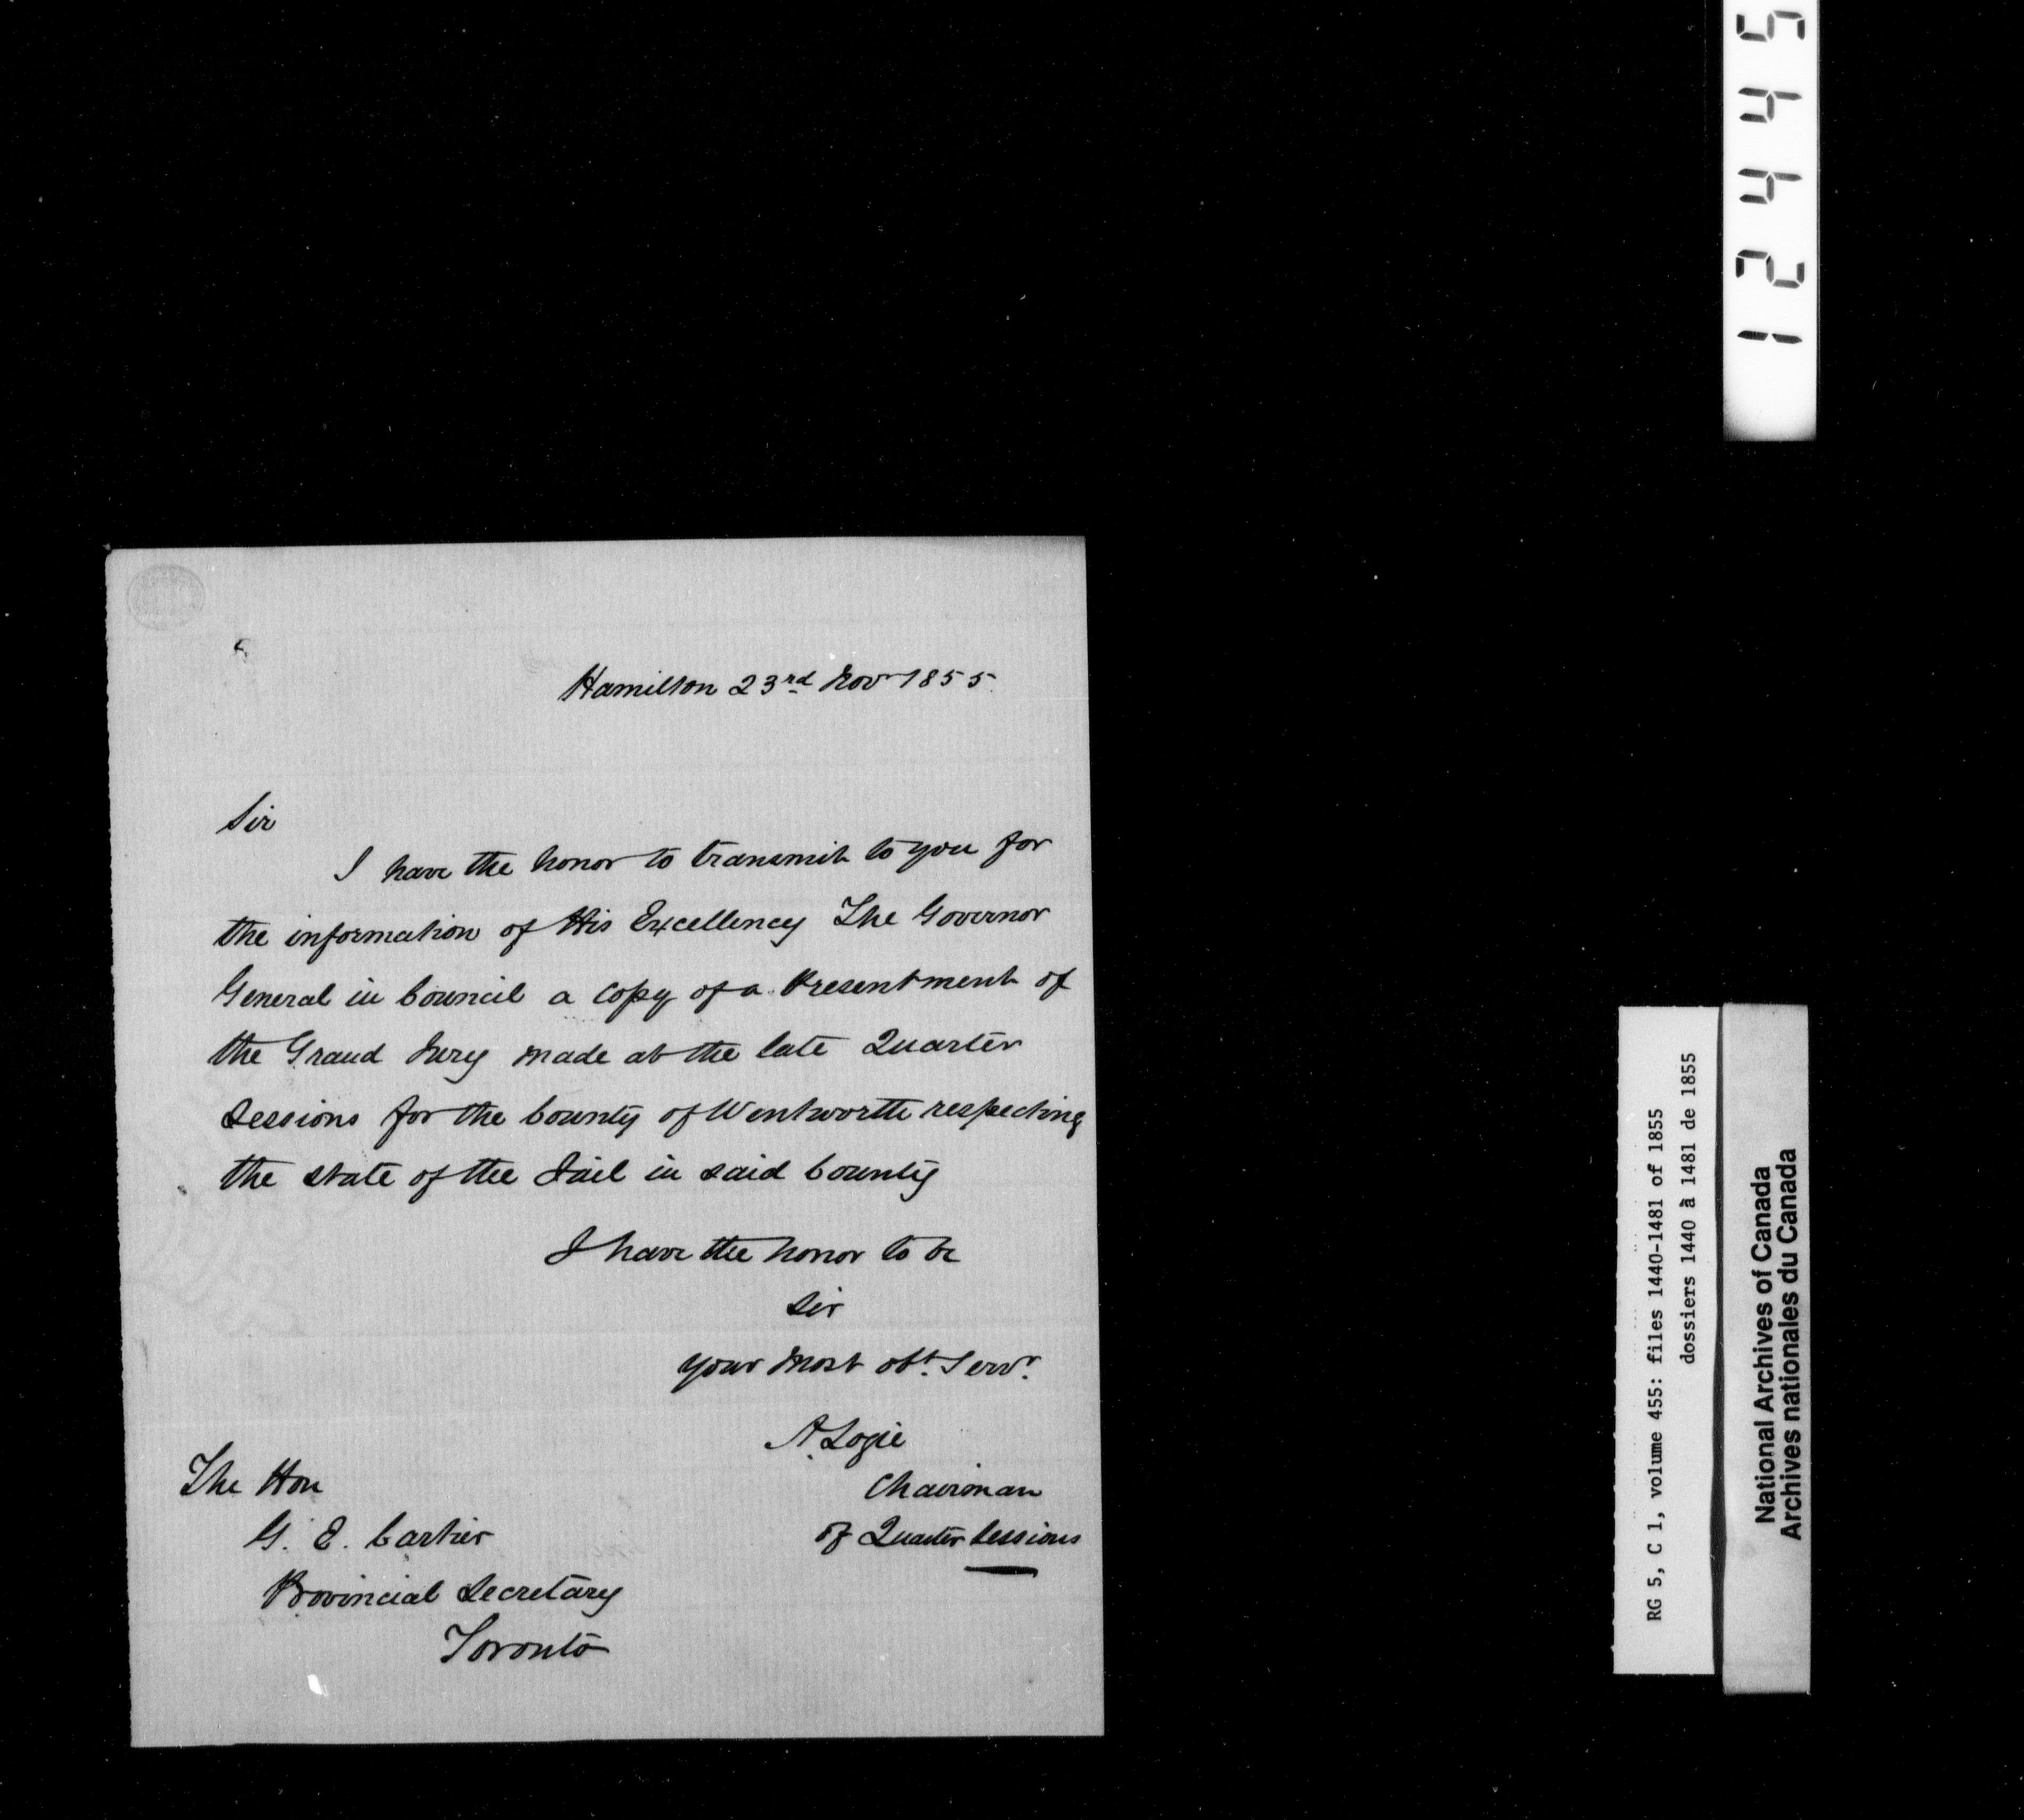 Hamilton 23rd Novr 1855
Sir
I have the honor to transmit to you for
the information of His Excellency The Governor
General in Council a Copy of a Presentment of
the Grand Jury made at the late Quarter
Sessions for the County of Wentworth respecting
the state of the Jail in said County
I have the honor to be
Sir
your most obt. Servt.
A. Logie
Chairman
of Quarter Sessions
The Hon
G. E. Cartier
Provincial Secretary
Toronto
RG 5, C 1, volume 455: files 1440-1481 of 1855
dossiers 1440 à 1481 de 1855
National Archives of Canada
Archives nationales du Canada